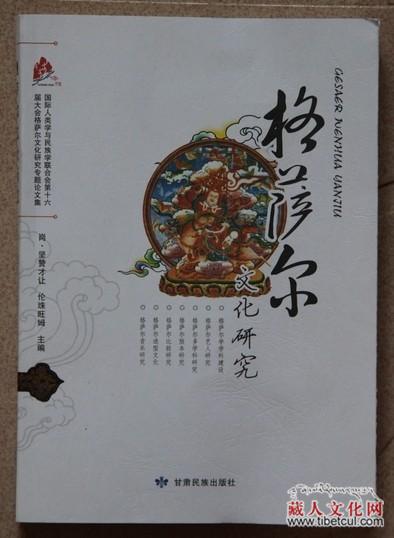 GESAER WENHUA YANJIU
格萨尔
文化研究
国际人类学与民族学联合会第十六
届大会格萨尔文化研究专题论文集
岗·坚赞才让 伦珠旺姆 主编
格萨尔学学科建设
格萨尔艺人研究
格萨尔多学科研究
格萨尔版本研究
格萨尔比较研究
格萨尔造型文化
格萨尔音乐研究
甘肃民族出版社
藏人文化网
www.tibetcul.com